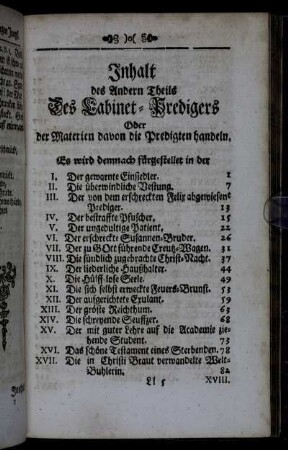 Inhalt
des Andern Theils
Des Cabinet-Predigers
Oder
der Materien davon die Predigten handeln.
Es wird demnach fürgestellet in der
I. Der gewarnte Einsiedler. 1
II. Die überwindliche Vestung. 7
III. Der von dem erschreckten Felix abgewiesene
Prediger. 13
IV. Der bestraffte Pfuscher. 15
V. Der ungedultige Patient. 22
VI. Der erschreckte Susannen-Bruder. 26
VII. Der zu GOtt führende Creutz-Wagen. 31
VIII. Die sündlich zugebrachte Christ-Nacht. 37
IX. Der liederliche Haußhalter. 44
X. Die Hülff-lose Seele. 49
XI. Die sich selbst erweckte Feuers-Brunst. 53
XII. Der auffgerichtete Exulant. 59
XIII. Der gröste Reichthum. 63
XIV. Die schreyende Seuffzer. 68
XV. Der mit guter Lehre auf die Academie zie-
hende Student. 73
XVI. Das schöne Testament eines Sterbenden. 78
XVII. Die in Christi Braut verwandelte Welt-
Buhlerin. 82
Ll 5 XVIII.